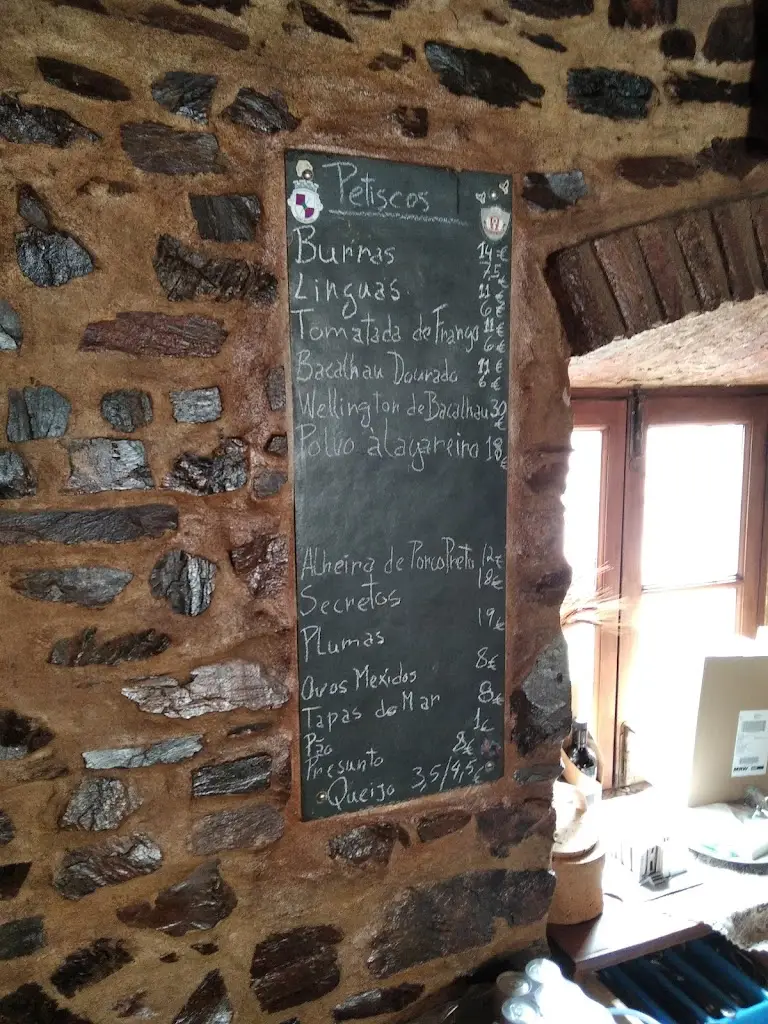 Petiscos
Burras 14€
7,5€
Linguas 11€
6€
Tomatada de Frango 11€
6€
Bacalhau Dourado 11€
6€
Wellington de Bacalhau 30€
Polvo à lagareiro 18€
Alheira de Porco Preto 12€
Secretos 18€
Plumas 19€
Ovos Mexidos 8€
Tapas do Mar 8€
Pão 1€
Presunto 8€
Queijo 3,5/4,5€